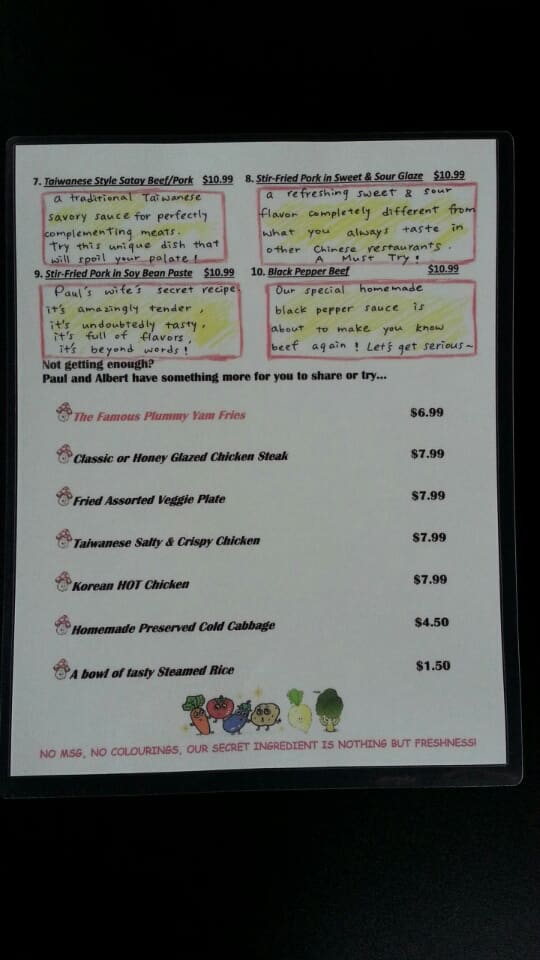 7. Taiwanese Style Satay Beef/Pork $10.99
a traditional Taiwanese
savory sauce for perfectly
complementing meats.
Try this unique dish that
will spoil your palate!
8. Stir-Fried Pork in Sweet & Sour Glaze $10.99
a refreshing sweet & sour
flavor completely different from
what you always taste in
other Chinese restaurants.
A Must Try!
9. Stir-Fried Pork in Soy Bean Paste $10.99
Paul's wife's secret recipe.
it's amazingly tender,
it's undoubtedly tasty,
it's full of flavors,
it's beyond words!
10. Black Pepper Beef $10.99
Our special homemade
black pepper sauce is
about to make you know
beef again! Let's get serious~
Not getting enough?
Paul and Albert have something more for you to share or try...
The Famous Plummy Yam Fries $6.99
Classic or Honey Glazed Chicken Steak $7.99
Fried Assorted Veggie Plate $7.99
Taiwanese Salty & Crispy Chicken $7.99
Korean HOT Chicken $7.99
Homemade Preserved Cold Cabbage $4.50
A bowl of tasty Steamed Rice $1.50
NO MSG, NO COLOURINGS, OUR SECRET INGREDIENT IS NOTHING BUT FRESHNESS!